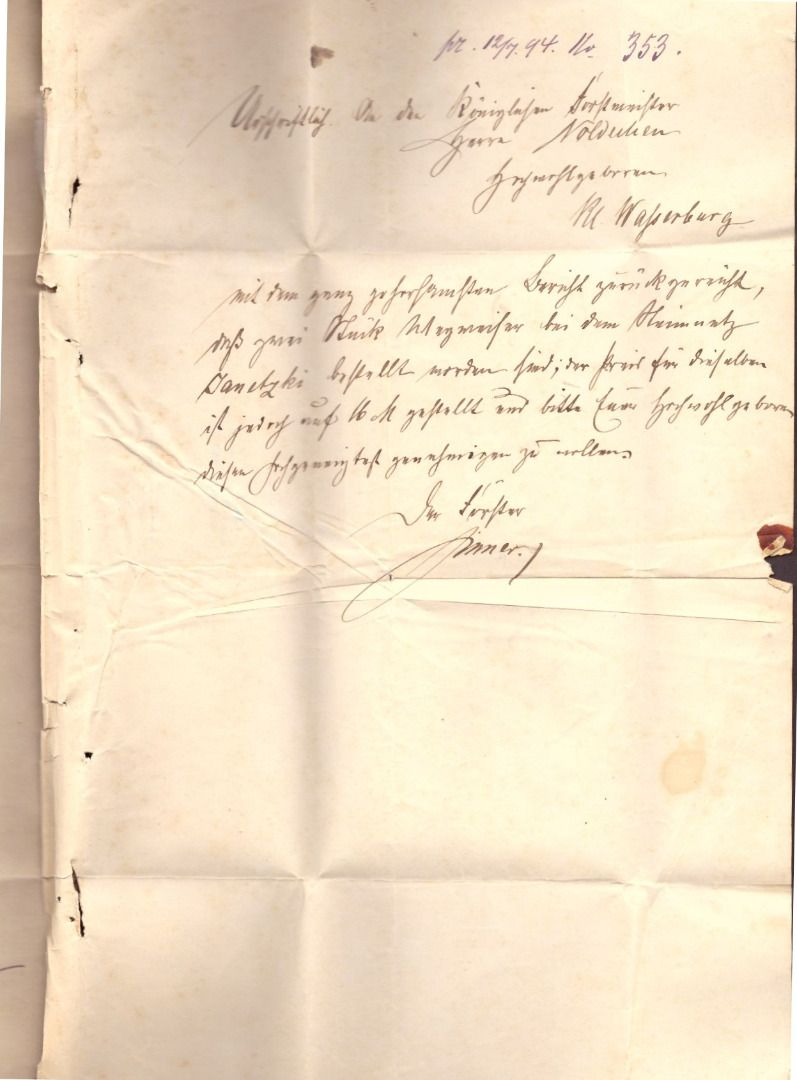 pr. 12/7. 94. No. 353.
Urschriftlich. An den Königlichen Forstmeister
Herrn Nöldechen
Hochwohlgeboren
Kl. Wasserburg
mit dem ganz gehorsamsten Bericht zurückgereicht,
daß zwei Stück Wegweiser bei dem Steinmetz
Janetzki bestellt worden sind; der Preis für dieselben
ist jedoch auf 16 M gestellt und bitte Euer Hochwohlgeboren
diesen hochgeneigtest genehmigen zu wollen.
Der Förster